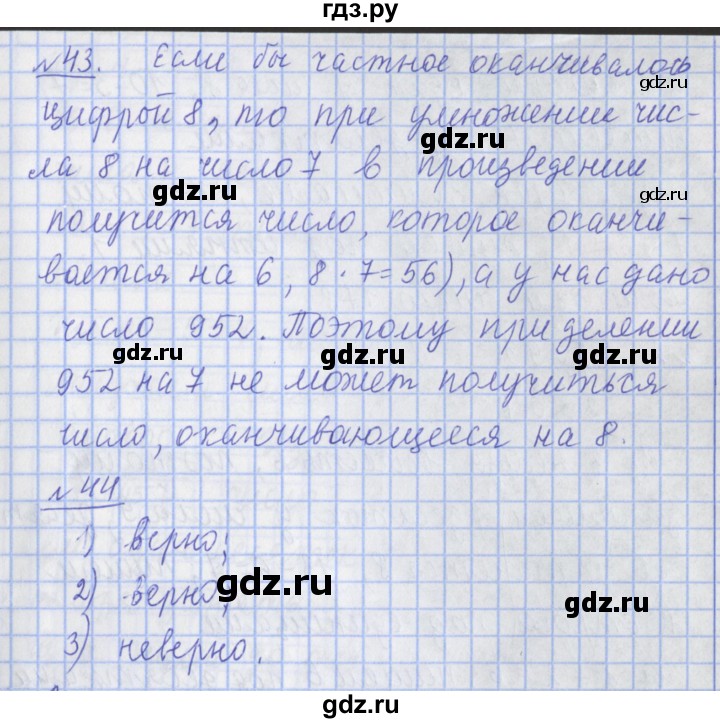 гдз.ру
№43. Если бы частное оканчивалось
gdz.ru
цифрой 8, то при умножении чис-
gdz.ru
ла 8 на число 7 в произведении
gdz.ru
gdz.ru
получится число, которое оканчи-
вается на 6, 8·7=56), а у нас дано
число 952. Поэтому при делении
gdz.ru
gdz.ru
952 на 7 не может получиться
число, оканчивающееся на 8.
№44
gdz.ru
1) верно;
2) верно;
gdz.ru
gdz.ru
3) неверно.
gdz.ru